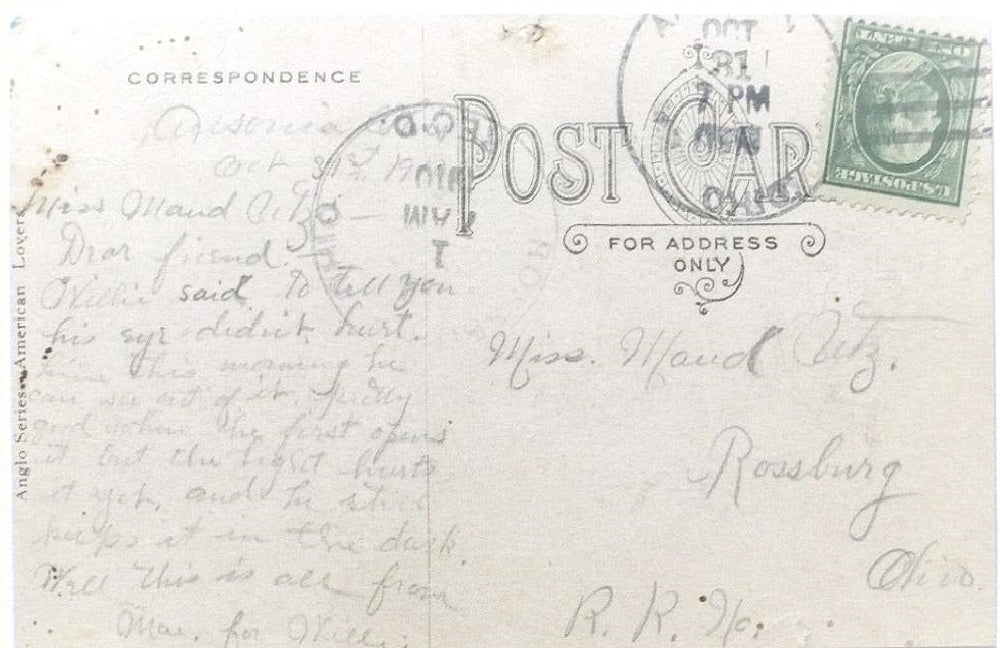 CORRESPONDENCE
Ansonia Ohio
Oct 31st, 19
Miss Maud Utz
Dear friend.
Willie said to tell you
his eye didn't hurt.
him this morning he
can see out of it, pretty
good when he first opens
it but the light hurts
it yet, and he still
keeps it in the dark.
Well this is all from
Mae. for Willie.
Anglo Series. American Lovers
POST CARD
FOR ADDRESS
ONLY
OCT
31
7 PM
OHIO
U.S. POSTAGE
Miss. Maud Utz.
Rossburg
Ohio.
R. R. No.